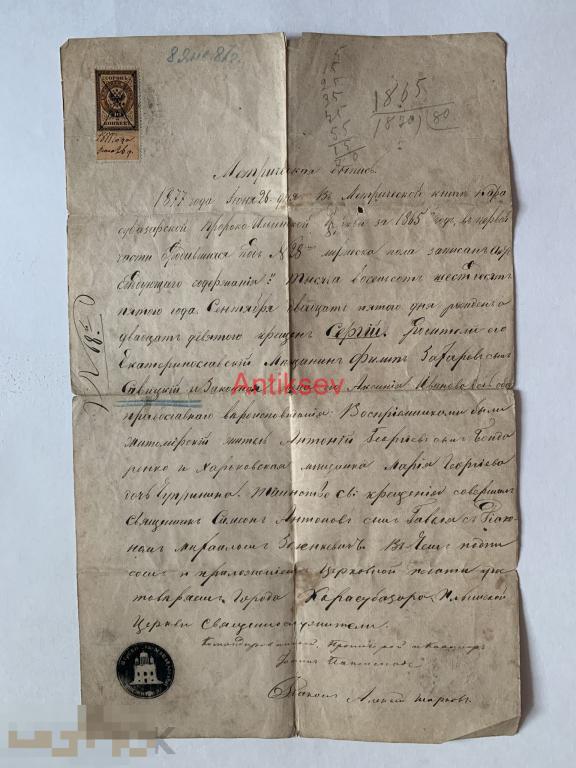 8 Янв. 86 г.
1865
1820 80
Метрическая выпись
1877 года Июня 26 дня. Въ Метрической книгѣ Кара
субазарской Пророко-Ильинской за 1865 годъ, въ первой
части о родившихся подъ № 28 мужеска пола записанъ актъ
слѣдующаго содержанія: Тысяча восемьсотъ шестьдесятъ
пятого года Сентября двадцать пятого дня рожденъ а
двадцать девятого крещенъ Сергій. Родители его
Екатеринославскій Мѣщанинъ Филипъ Захаровъ сынъ
Савицкій и законная жена его Аксинія Иванова оба
православнаго вѣроисповѣданія: Воспріемниками были
житомірскій житель Антоній Георгіевъ сынъ Бонда
ренко и Харьковская мѣщанка Марія Георгіева
дочь. Таинство Св: крещенія совершилъ
Священникъ Самсонъ Антоновъ сынъ съ Діако
номъ Михаиломъ Зененкевичъ. Въ чемъ подпи
сомъ и приложеніемъ Церковной печати удо
стовѣряемъ. Города Карасубазара, Ильинской
Церкви Священнослужители.
Протоіерей и Кавалеръ
Іоаннъ
Діаконъ Алексій
Antiksev